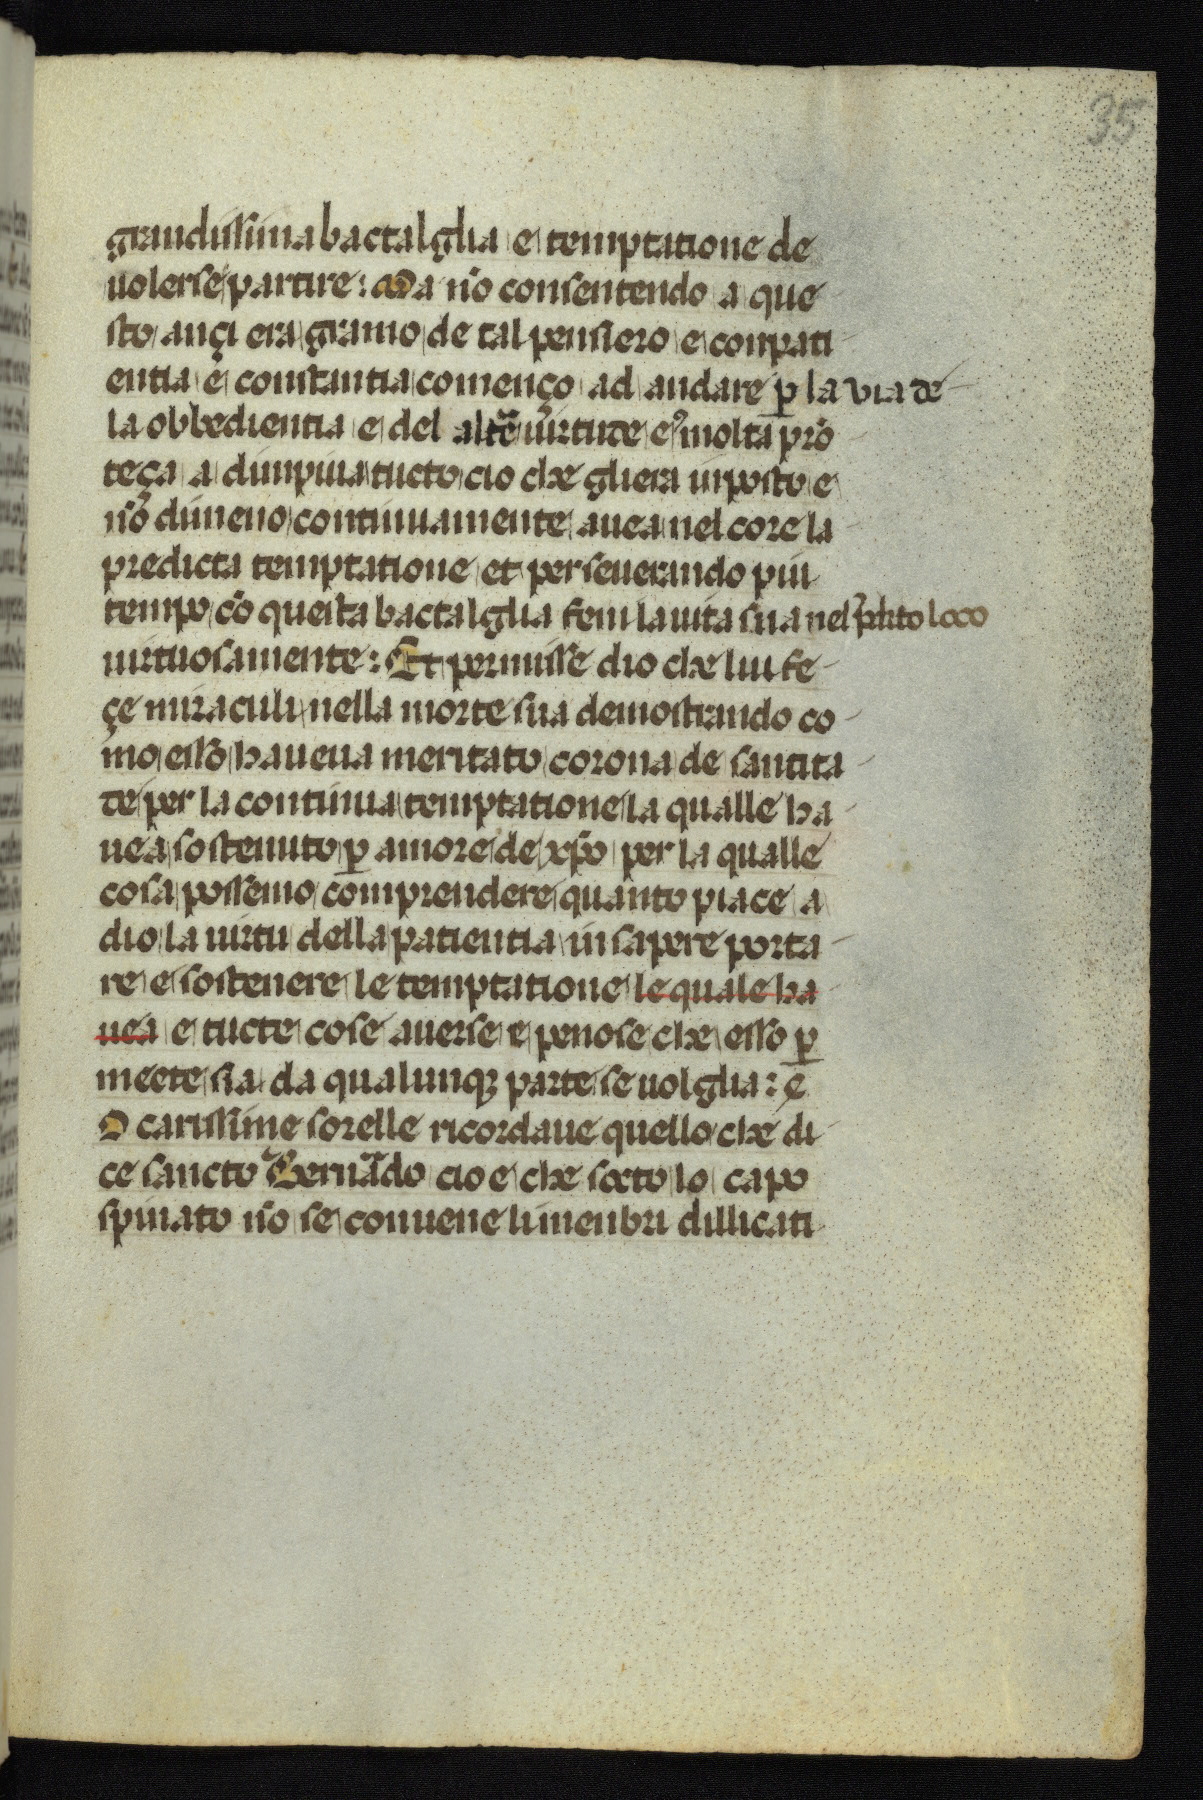 35
grandissima bactalglia e temptatione de
uolerse partire: Ma nõ consentendo a que
sto ançi era gramo de tal pensiero e conpati
entia e constantia començo ad andare p̱ la via de
la obbedientia e del altẽ uirtute e molta prõ
teça a dimpiua tucto cio che gliera inposto e
nõ dimeno continuamente auea nel core la
predicta temptatione et perseuerando piu
tempo cõ questa bactalglia feni la uita sua nel p̃dcto loco
uirtuosamente: Et permisse dio che lui fe
çe miraculi nella morte sua demostrando co
mo esso haueua meritato corona de santita
te per la continua temptatione la qualle ha
uea sostenuto p̱ amore de xp̃o per la qualle
cosa possemo comprendere quanto piace a
dio la uirtu della patientia in sapere porta
re e sostenere le temptatione le quale ha
uea e tucte cose auerse e penose che esso p̱
meete sia da qualunqꝫ parte se uolglia: e
O carissime sorelle ricordaue quello che di
ce sancto Bernãdo cio e che socto lo capo
spinato nõ se conuene li menbri dillicati